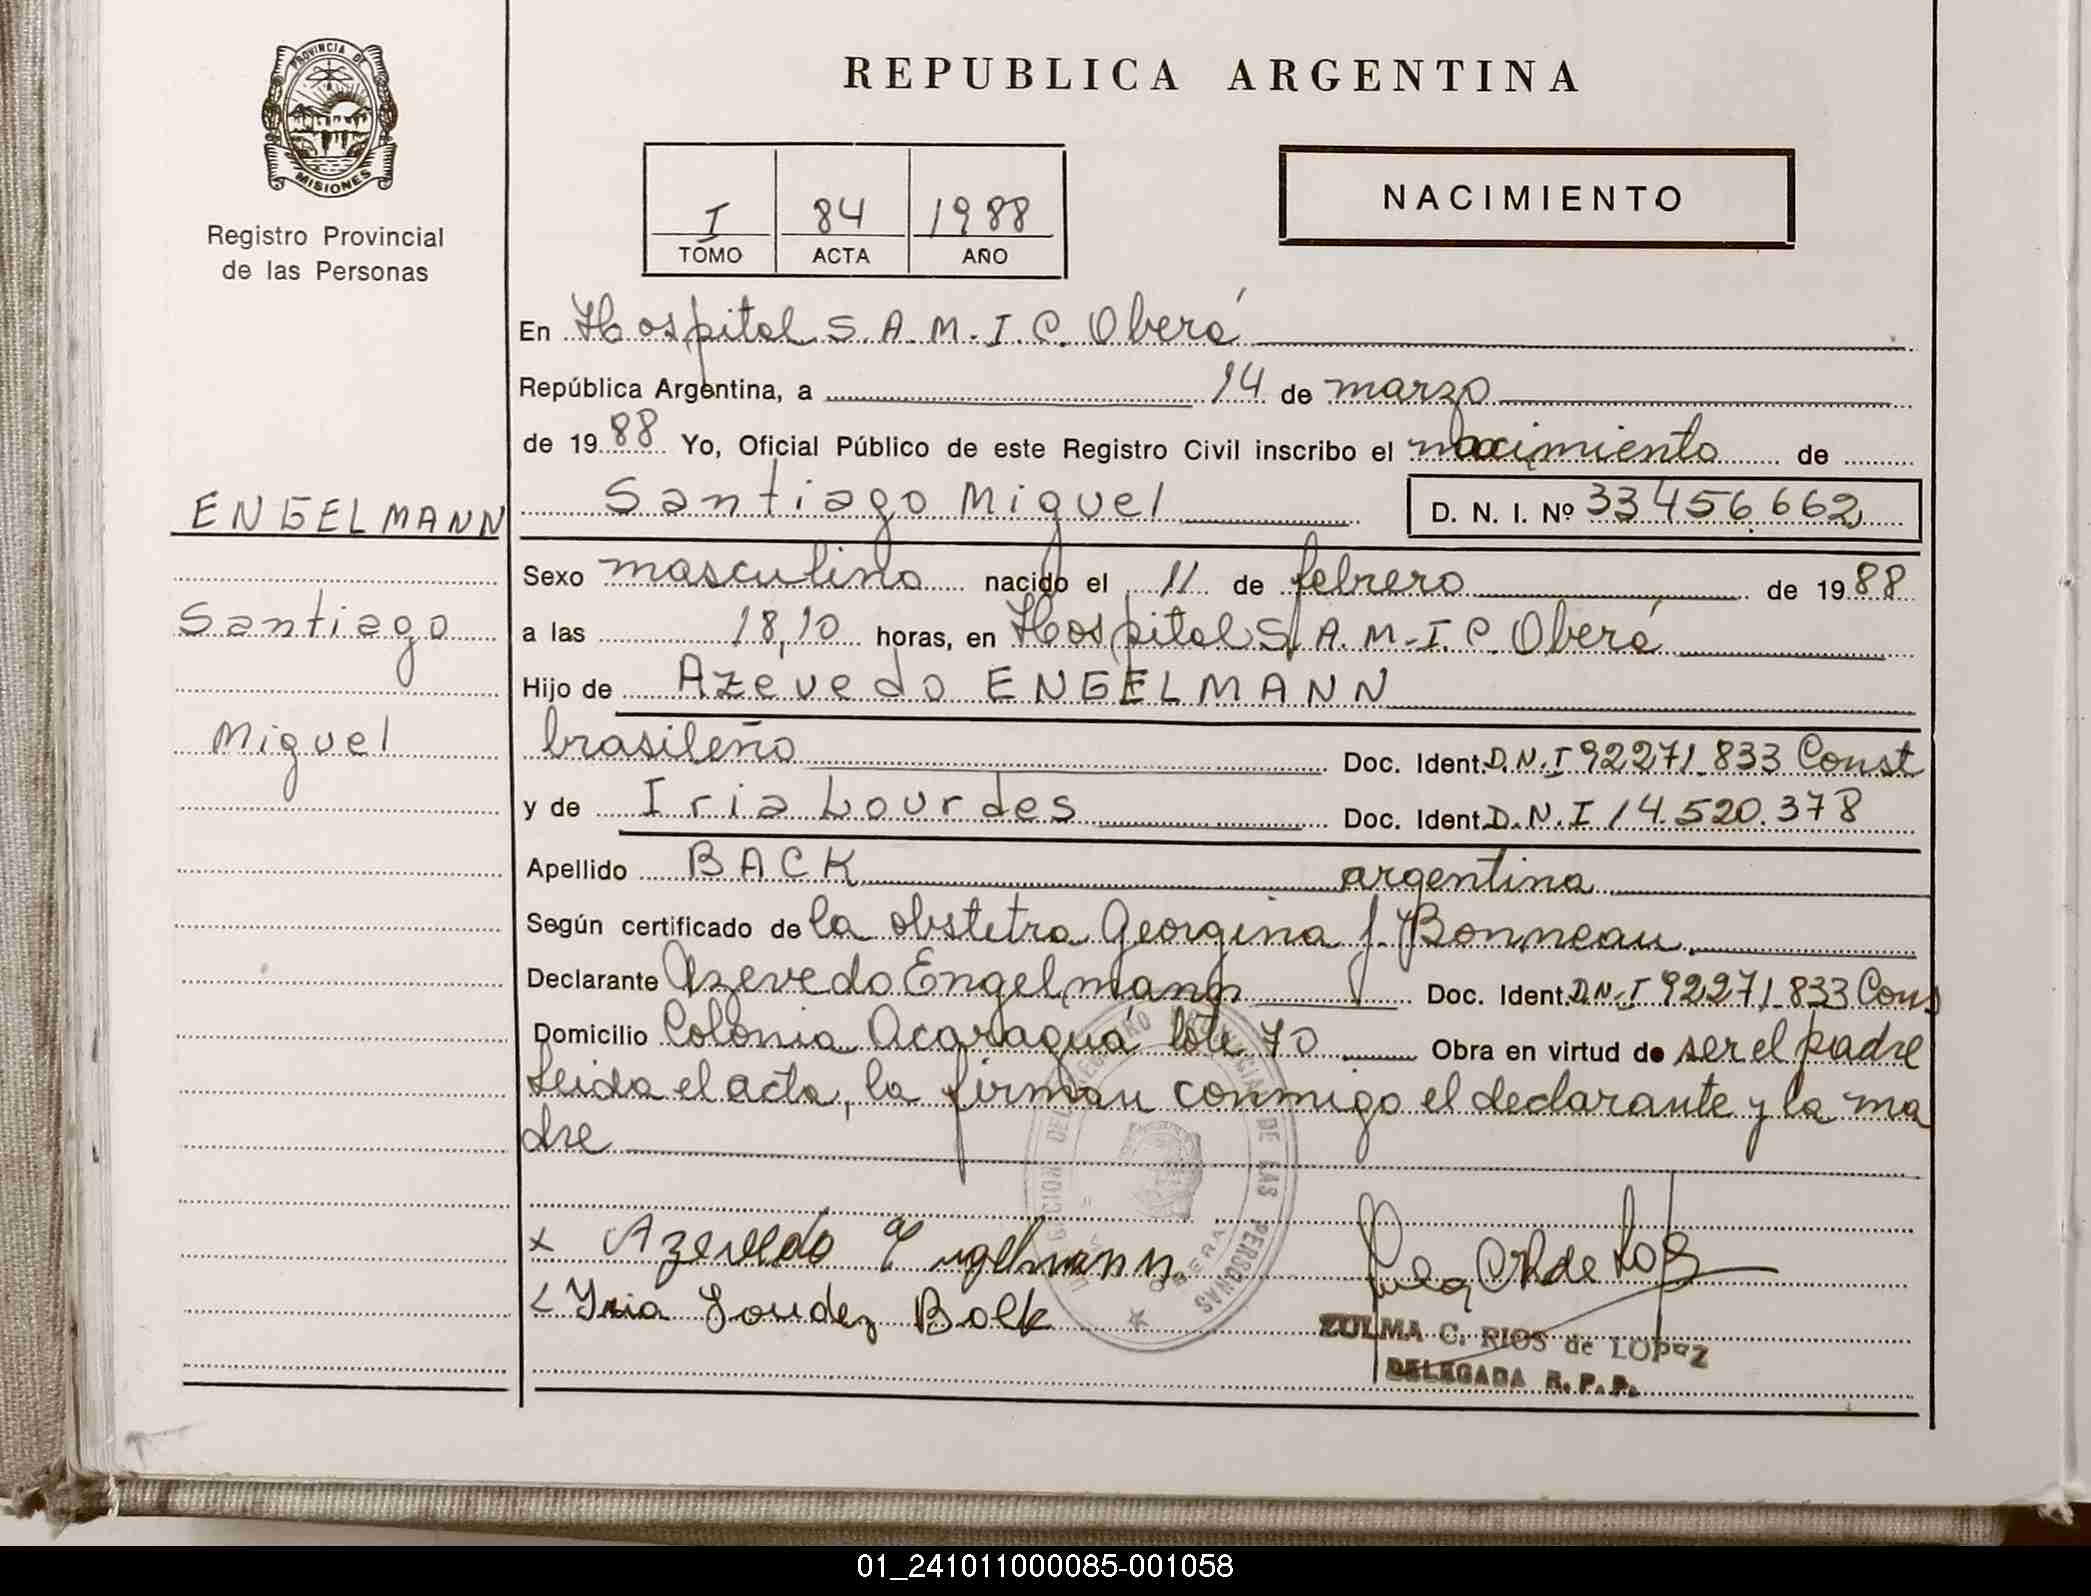 PROVINCIA DE
MISIONES
Registro Provincial
de las Personas
REPUBLICA ARGENTINA
I 84 1988
TOMO ACTA AÑO
NACIMIENTO
En Hospital S.A.M.I.C. Oberá
República Argentina, a 14 de marzo
de 1988 Yo, Oficial Público de este Registro Civil inscribo el nacimiento de
ENGELMANN
Santiago Miguel D. N. I. Nº 33456.662
Sexo masculino nacido el 11 de febrero de 1988
Santiago
a las 18,10 horas, en Hospital S.A.M.I.C. Oberá
Hijo de Azevedo ENGELMANN
Miguel
brasileño Doc. Ident. D.N.I 92271.833 Const
y de Iria Lourdes Doc. Ident. D.N.I 14.520.378
Apellido BACK argentina
Según certificado de la obstetra Georgina J. Bonneau
Declarante Azevedo Engelmann Doc. Ident. D.N.I 92271.833 Cons
Domicilio Colonia Acaraguá lote 70 Obra en virtud de ser el padre
Leida el acta, la firman conmigo el declarante y la ma
dre
DEL REGISTRO PROVINCIAL DE LAS PERSONAS
OBERA
x Azevedo Engelmann
Iria Loudez Bolk
ZULMA C. RIOS de LOPEZ
DELEGADA R. P. P.
01_241011000085-001058